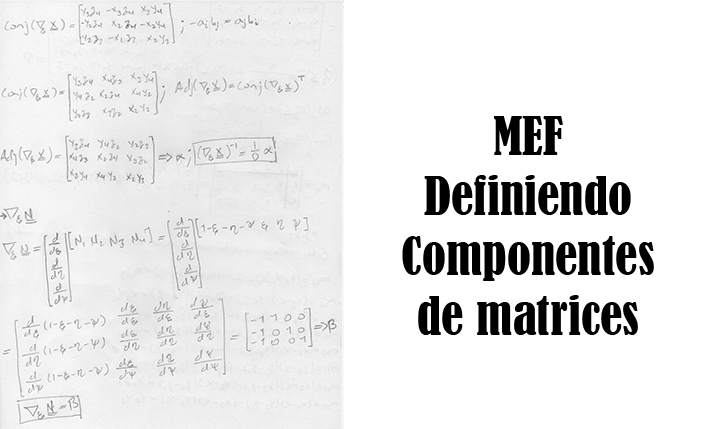 Conj(∇ξ X) = [y3z4 -x3z4 x3y4; -y4z2 x2z4 -x4y2; y2z3 -x2z3 x2y3]; -aibj = ajbi
Conj(∇ξ X) = [y3z4 x4z3 x3y4; y4z2 x2z4 x4y2; y2z3 x3z2 x2y3]; Adj(∇ξ X) = Conj(∇ξ X)^T
Adj(∇ξ X) = [y3z4 y4z2 y2z3; x4z3 x2z4 x3z2; x3y4 x4y2 x2y3] => α; (∇ξ X)^-1 = 1/D α
→ ∇ξ N
∇ξ N = [d/dξ; d/dη; d/dψ] [N1 N2 N3 N4] = [d/dξ; d/dη; d/dψ] [1-ξ-η-ψ ξ η ψ]
= [d/dξ (1-ξ-η-ψ) dξ/dξ dη/dξ dψ/dξ; d/dη (1-ξ-η-ψ) dξ/dη dη/dη dψ/dη; d/dψ (1-ξ-η-ψ) dξ/dψ dη/dψ dψ/dψ] = [-1 1 0 0; -1 0 1 0; -1 0 0 1] => β
∇ξ N = β
MEF
Definiendo
Componentes
de matrices